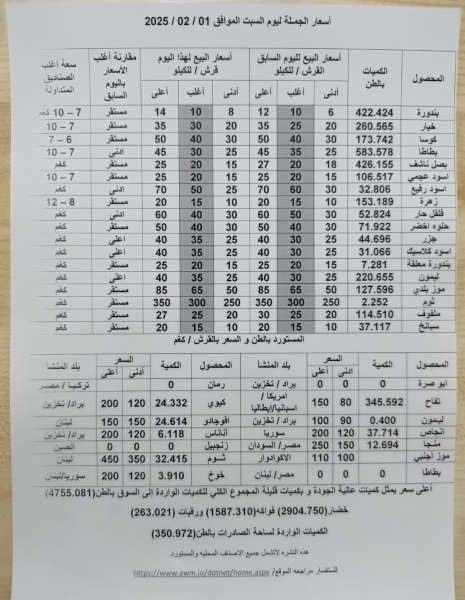 أسعار الجملة ليوم السبت الموافق 01 / 02 / 2025
المحصول الكميات بالطن أسعار البيع لليوم السابق القرش / للكيلو أسعار البيع لهذا اليوم قرش / للكيلو مقارنة أغلب الأسعار باليوم السابق سعة أغلب الصناديق المتداولة
أدنى أغلب أعلى أدنى أغلب أعلى
بندورة 422.424 6 10 12 8 10 14 مستقر 7 – 10 كغم
خيار 260.565 20 30 35 20 30 35 مستقر 7 – 10
كوسا 173.742 30 40 50 30 40 50 مستقر 6 – 7
بطاطا 583.578 30 35 45 25 31 45 ادنى 7 – 10
بصل ناشف 426.155 18 20 27 15 20 25 مستقر كغم
اسود عجمي 106.517 15 20 25 15 20 25 مستقر 7 – 10
اسود رفيع 32.806 30 60 70 25 50 70 ادنى كغم
زهرة 153.189 10 15 20 10 15 20 مستقر 8 – 12
فلفل حار 52.824 30 50 60 30 40 60 ادنى كغم
حلوه اخضر 71.922 30 40 50 30 40 50 مستقر كغم
جزر 44.696 25 30 40 25 35 40 اعلى كغم
اسود كلاسيك 31.066 25 30 40 25 35 40 اعلى كغم
بندورة معلقة 7.281 15 20 25 15 20 25 مستقر كغم
ليمون 220.655 25 30 40 25 35 40 اعلى كغم
موز بلدي 127.596 50 65 85 50 65 85 مستقر كغم
ثوم 2.252 250 300 350 250 300 350 مستقر كغم
ملفوف 114.510 15 20 25 20 25 27 مستقر كغم
سبانخ 37.117 10 15 20 10 15 20 مستقر كغم
المستورد بالطن و السعر بالقرش / كغم
المحصول الكمية السعر بلد المنشأ المحصول الكمية السعر بلد المنشأ
أدنى أعلى أدنى أعلى
ابو صرة 0 0 0 براد / تخزين رمان 0 0 0 تركيا / مصر
تفاح 345.592 80 150 امريكا / اسبانيا/ايطاليا كيوي 24.332 120 200 براد/ تخزين
ليمون 0.400 90 100 براد / تخزين افوجادو 24.614 150 150 لبنان
انجاص 37.714 120 200 سوريا أناناس 6.118 120 200 براد/ تخزين
منجا 12.694 150 250 مصر/ السودان زنجبيل 0 0 0 الصين
موز أجنبي 100 110 الاكوادوار ثوم 32.415 350 450 لبنان
بطاطا 0 0 0 مصر/ لبنان خوخ 3.910 120 200 سوريا/لبنان
أعلى سعر يمثل كميات عالية الجودة و بكميات قليلة المجموع الكلي للكميات الواردة إلى السوق بالطن(4755.081)
خضار(2904.750) فواكه(1587.310) ورقيات (263.021)
الكميات الواردة لساحة الصادرات بالطن(350.972)
هذه النشره لاتشمل جميع الاصناف المحليه والمستورد
للستفسار مراجعه الموقع/ https://www.awm.jo/dotnet/home.aspx